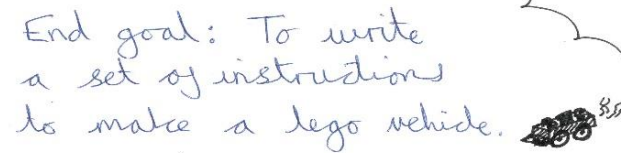 End goal: To write
a set of instructions
to make a lego vehicle.